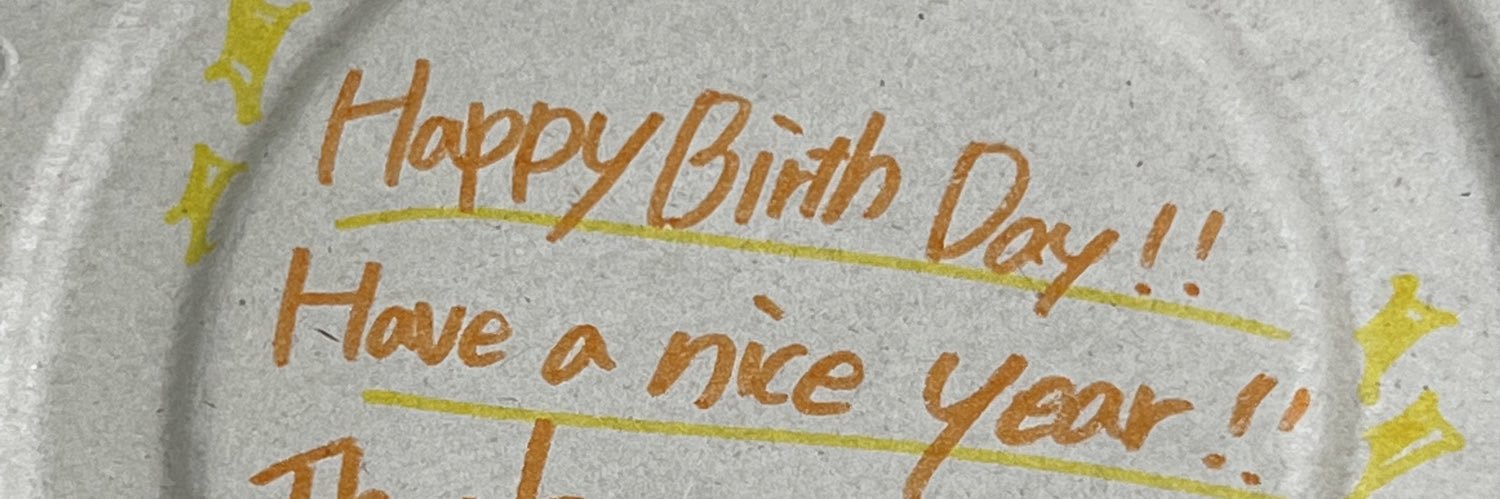 Happy Birth Day!!
Have a nice year!!